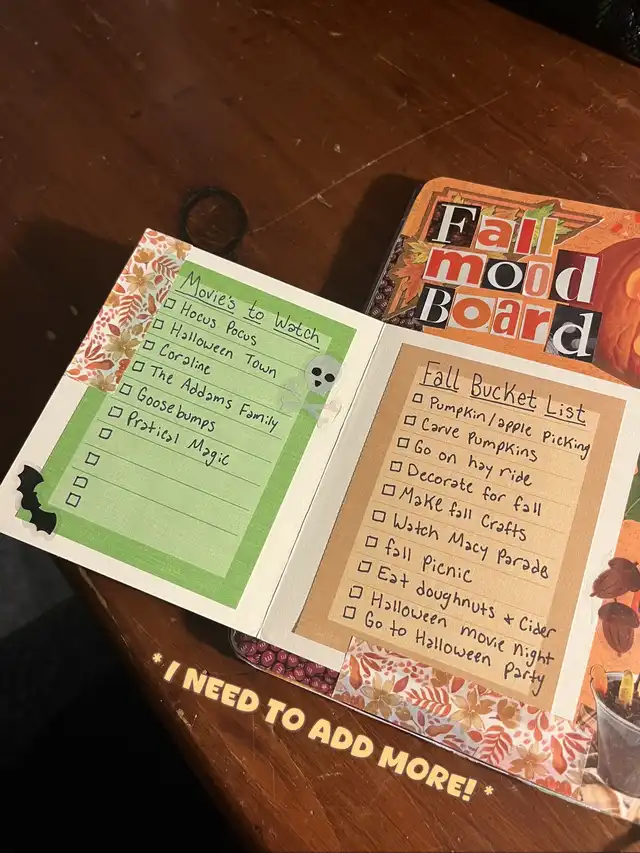 Fall
mood
Board
Movie's to Watch
Hocus Pocus
Halloween Town
Coraline
The Addams Family
Goosebumps
Pratical Magic
Fall Bucket List
Pumpkin/apple picking
Carve Pumpkins
Go on hay ride
Decorate for fall
Make fall Crafts
Watch Macy Parade
fall Picnic
Eat doughnuts & Cider
Halloween movie night
Go to Halloween Party
*I NEED TO ADD MORE!*